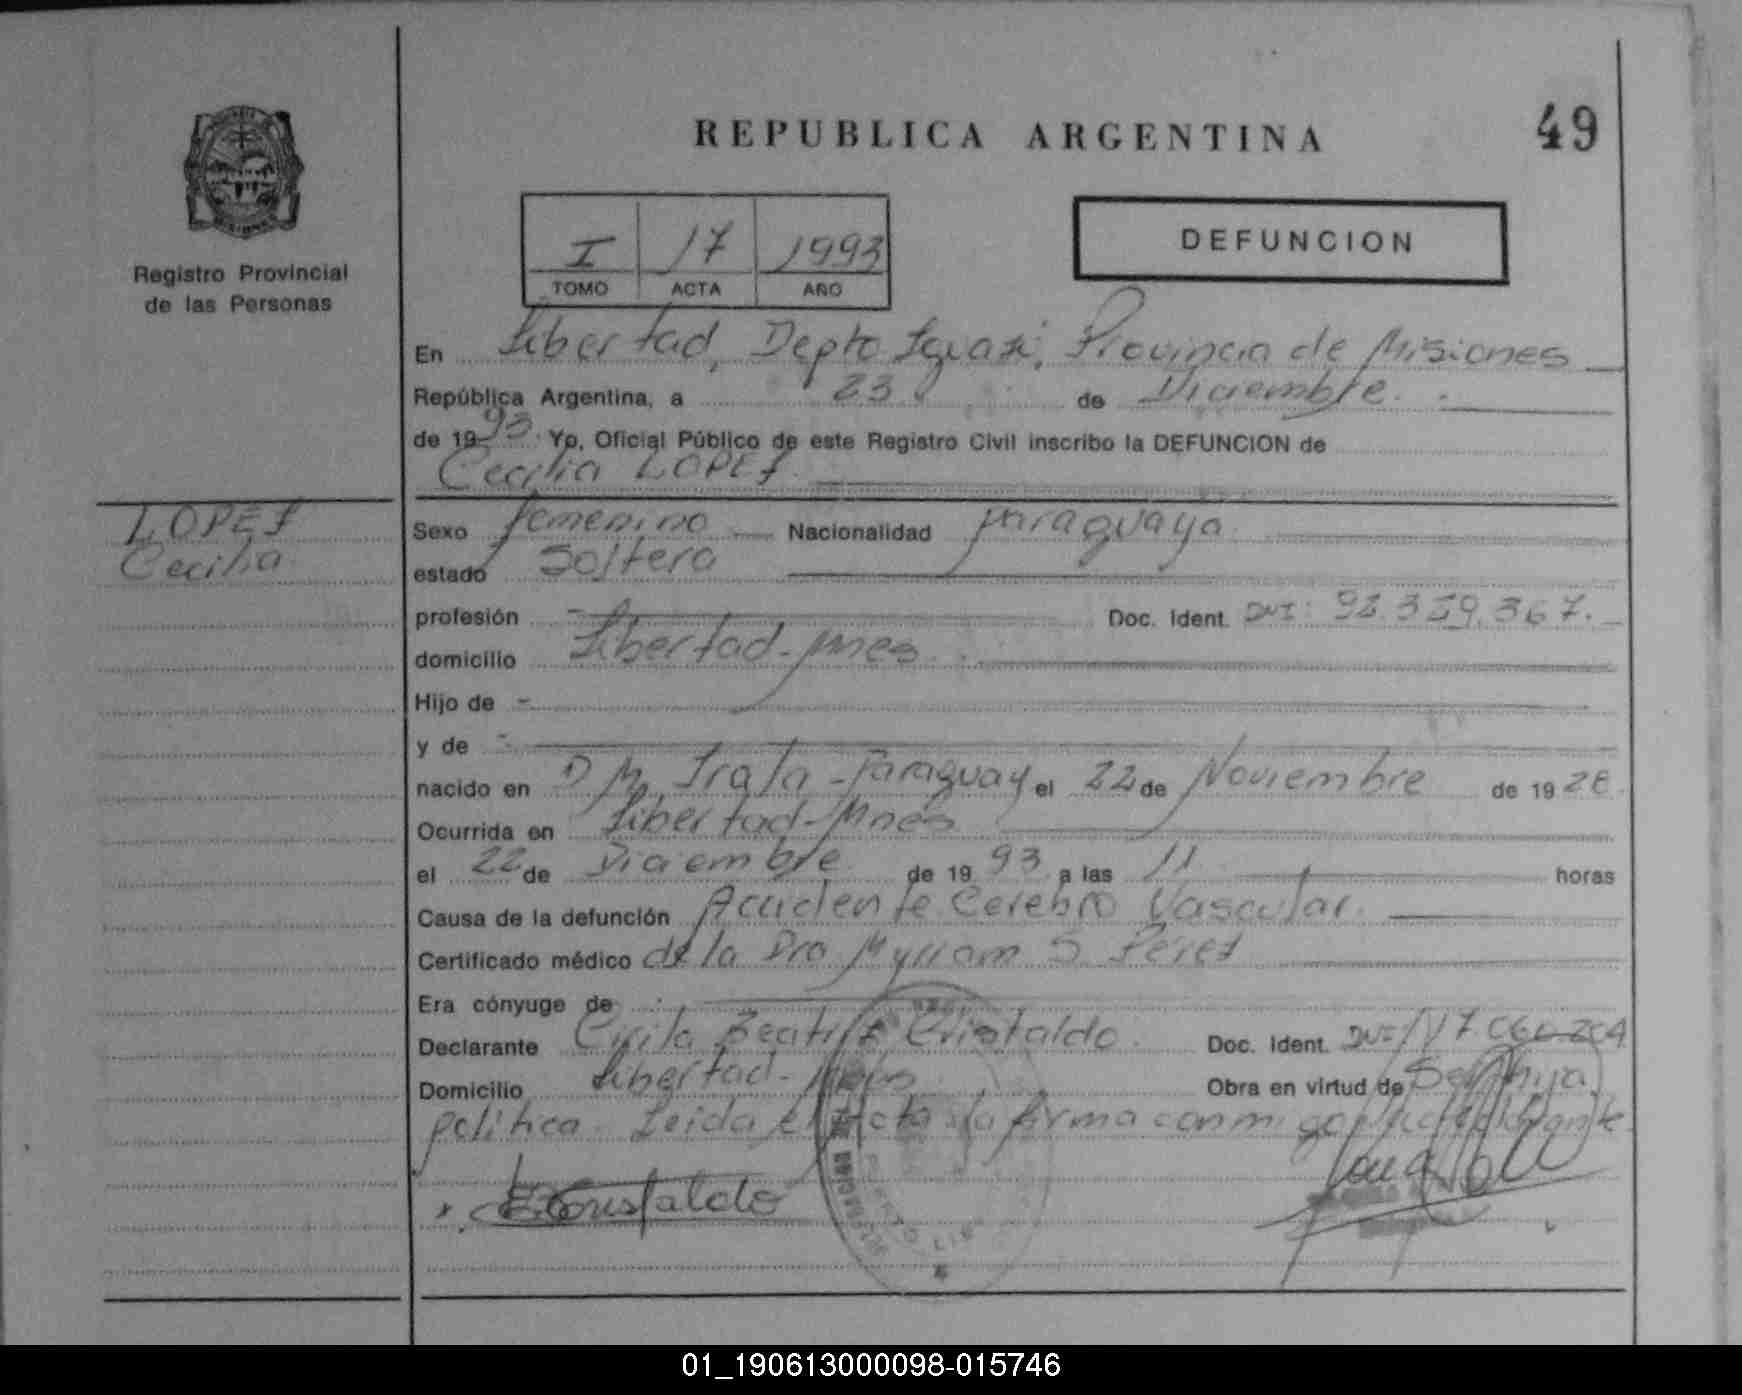 REPUBLICA ARGENTINA
49
Registro Provincial
de las Personas
I 17 1993
TOMO ACTA AÑO
DEFUNCION
En Libertad, Depto Iguazú, Provincia de Misiones
República Argentina, a 23 de Diciembre.
de 1993 Yo, Oficial Público de este Registro Civil inscribo la DEFUNCION de
Cecilia LOPEZ
LOPEZ
Cecilia
Sexo femenino Nacionalidad paraguaya
estado Soltera
profesión - Doc. Ident. DNI: 92.359.367.
domicilio Libertad-Mnes
Hijo de -
y de -
nacido en D M. Irala-Paraguay el 22 de Noviembre de 1928
Ocurrida en Libertad-Mnes
el 22 de Diciembre de 1993 a las 11 horas
Causa de la defunción Accidente Cerebro Vascular.
Certificado médico de la Dra Myriam S Perez
Era cónyuge de
Declarante Cirila Beatriz Cristaldo. Doc. Ident. DNI/ 17.060.204
Domicilio Libertad-Mnes Obra en virtud de Ser hija
politica. Leida el Acta la firma conmigo
Cristaldo
01_190613000098-015746